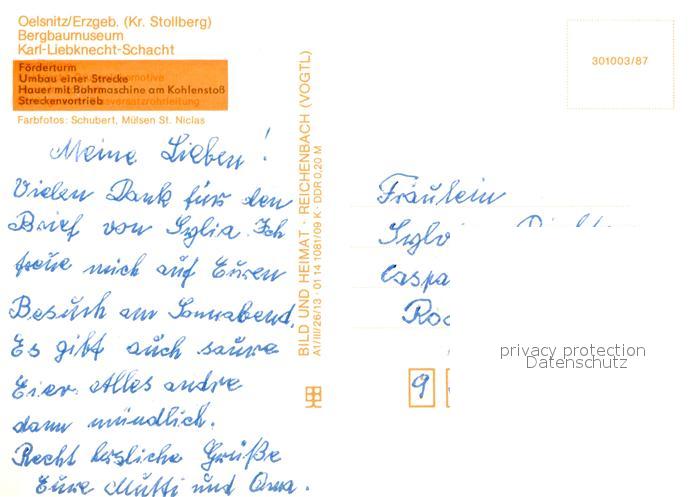 Oelsnitz/Erzgeb. (Kr. Stollberg)
Bergbaumuseum
Karl-Liebknecht-Schacht
Förderturm
Umbau einer Strecke
Hauer mit Bohrmaschine am Kohlenstoß
Streckenvortrieb
Farbfotos: Schubert, Mülsen St. Niclas
Meine Lieben!
Vielen Dank für den
Brief von Sylia. Ich
freue mich auf Euren
Besuch am Sonnabend.
Es gibt auch saure
Eier. Alles andre
dann mündlich.
Recht herzliche Grüße
Eure Mutti und Oma.
BILD UND HEIMAT · REICHENBACH (VOGTL)
A1/III/26/13 · 01 14 1081/09 K · DDR 0,20 M
301003/87
Fräulein
Sylv
Caspa
9
privacy protection
Datenschutz